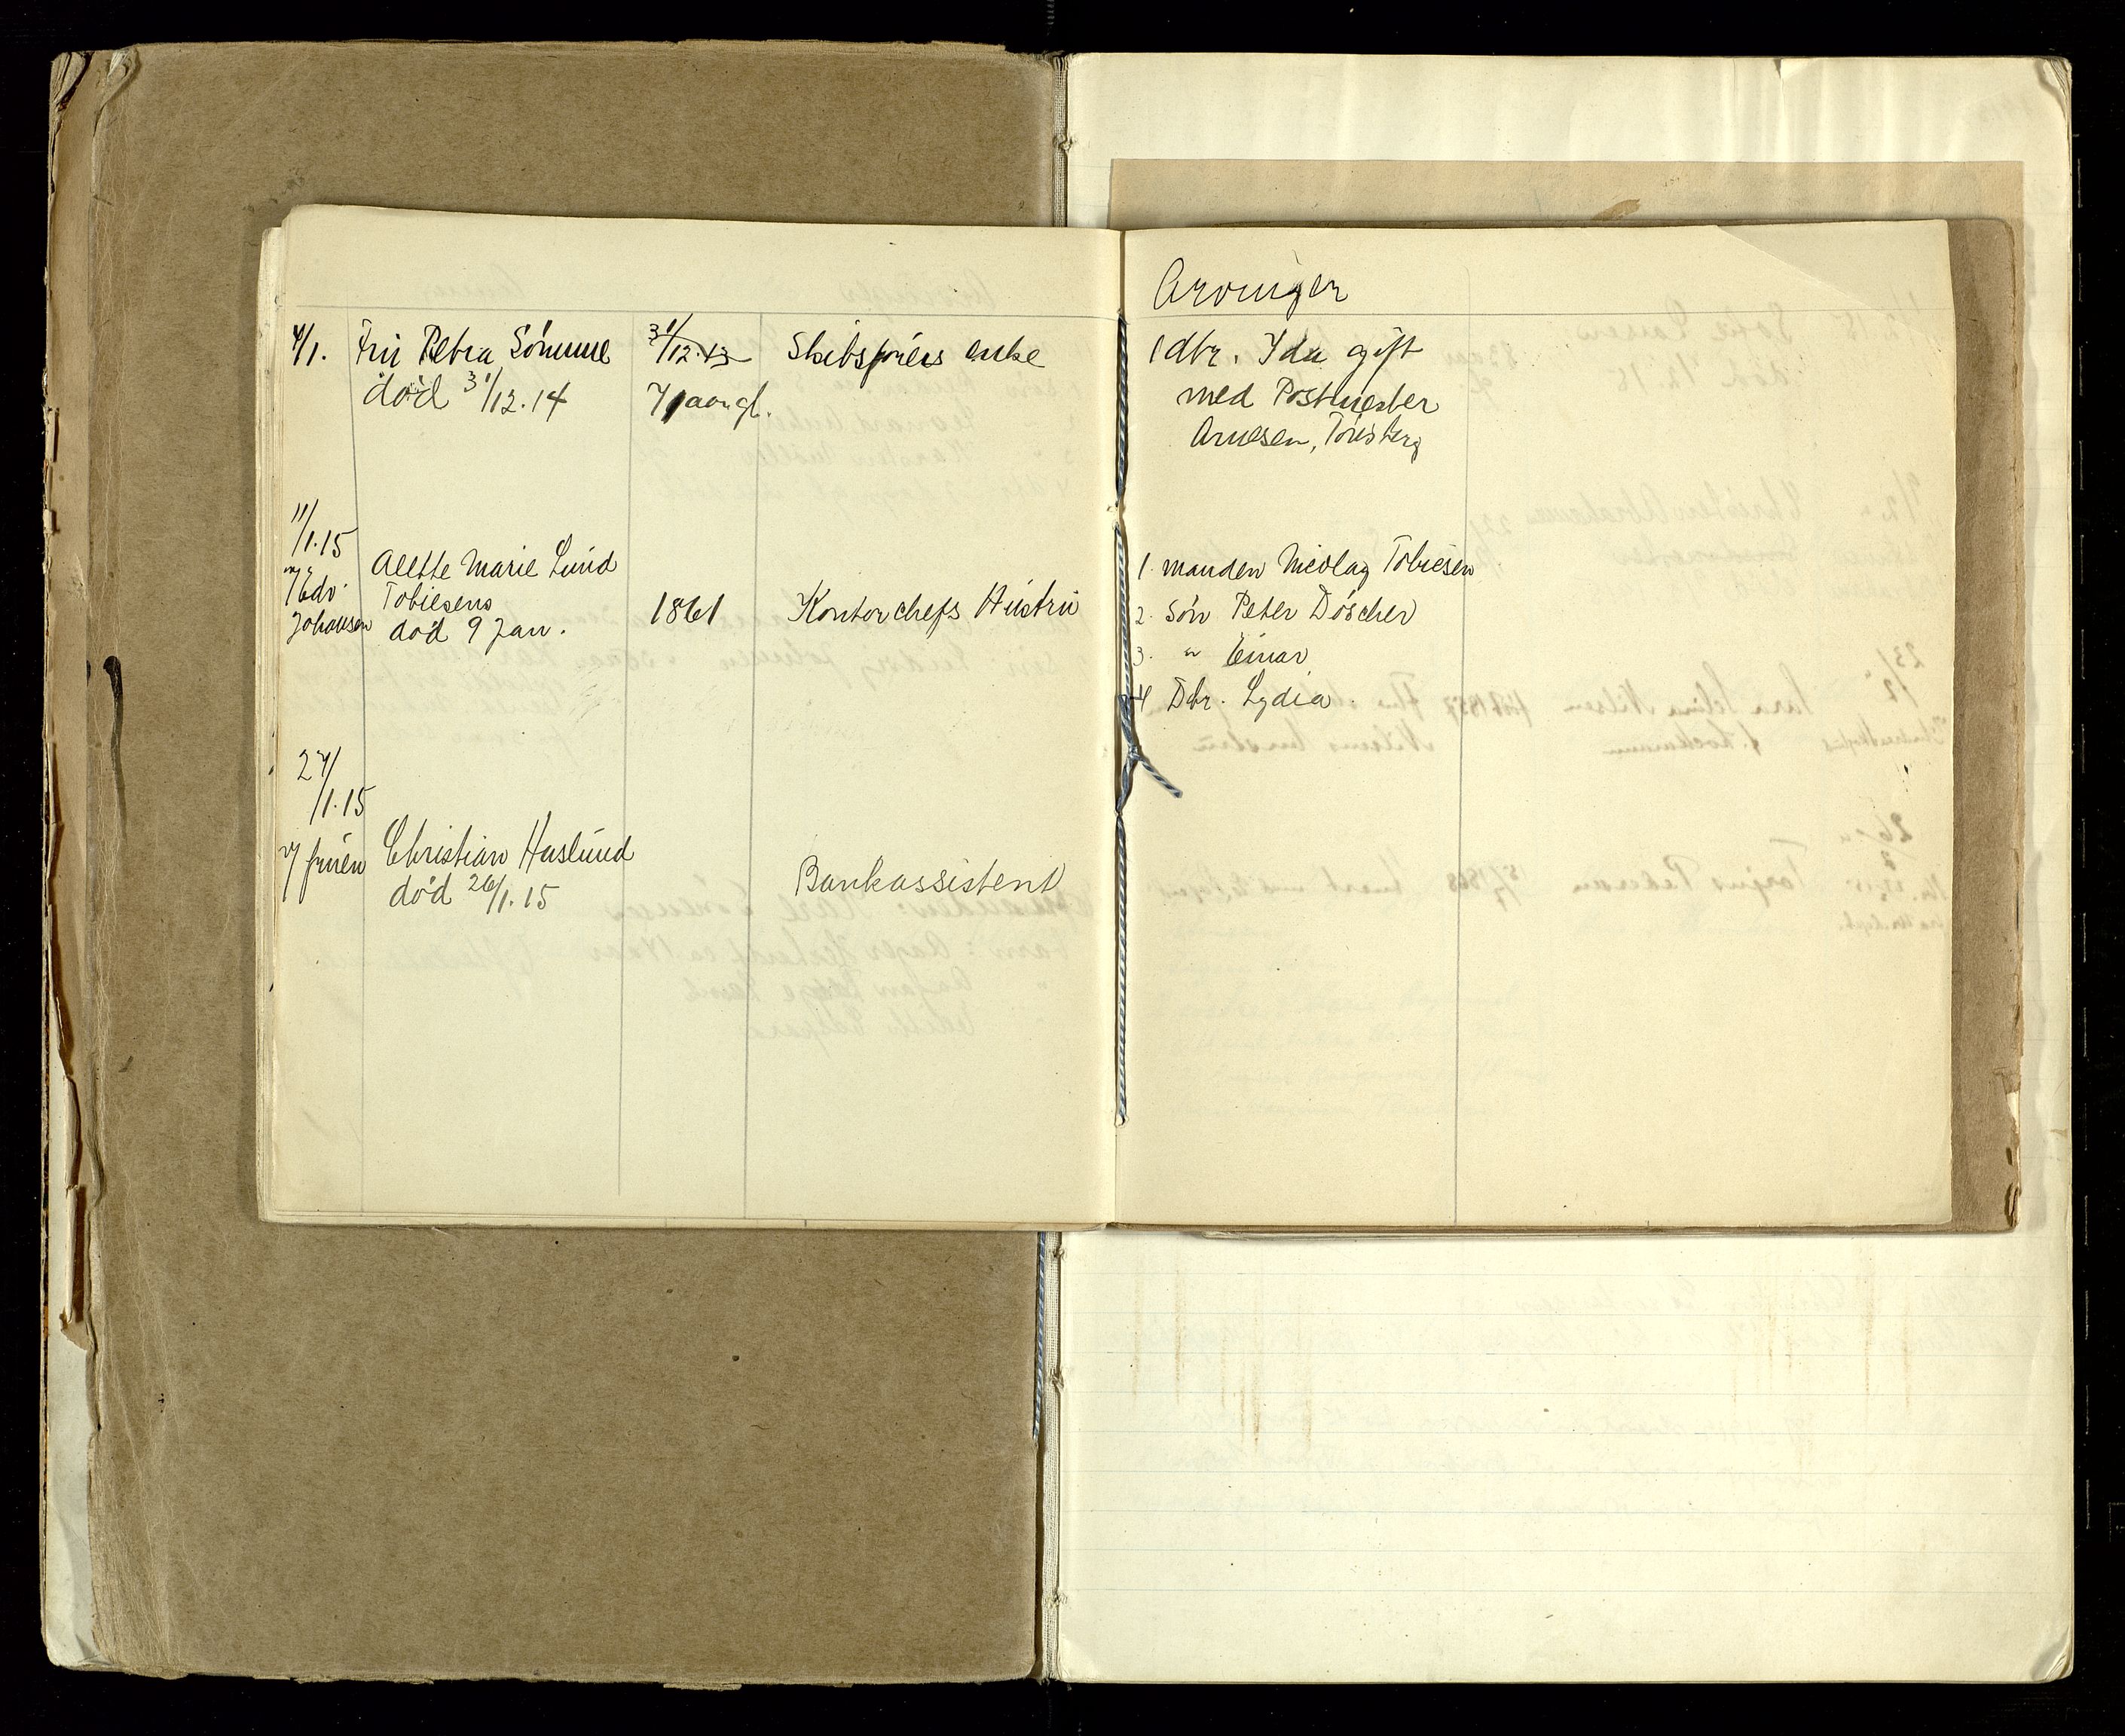 Arvinger
4/1. Fru Petra Sömme 31/12.13 Skibsförers enke 1 dtr. Ida gift
död 31/12.14 71 aar gl. med Postmester
Arnesen, Tönsberg
11/1.15
Alette Marie Lund 1. manden Nicolay Tobiesen
v/ Edv. Tobiesens 1861 Kontorchefs Hustru 2. sön Peter Döscher
Johansen död 9 Jan.
3. " Einar
4 Dtr. Lydia
27/1.15
v/ fruen Christian Haslund Bankassistent
död 26/1.15